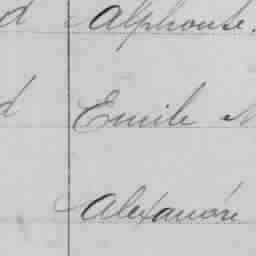 d Alphonse.
d Emile
Alexandre